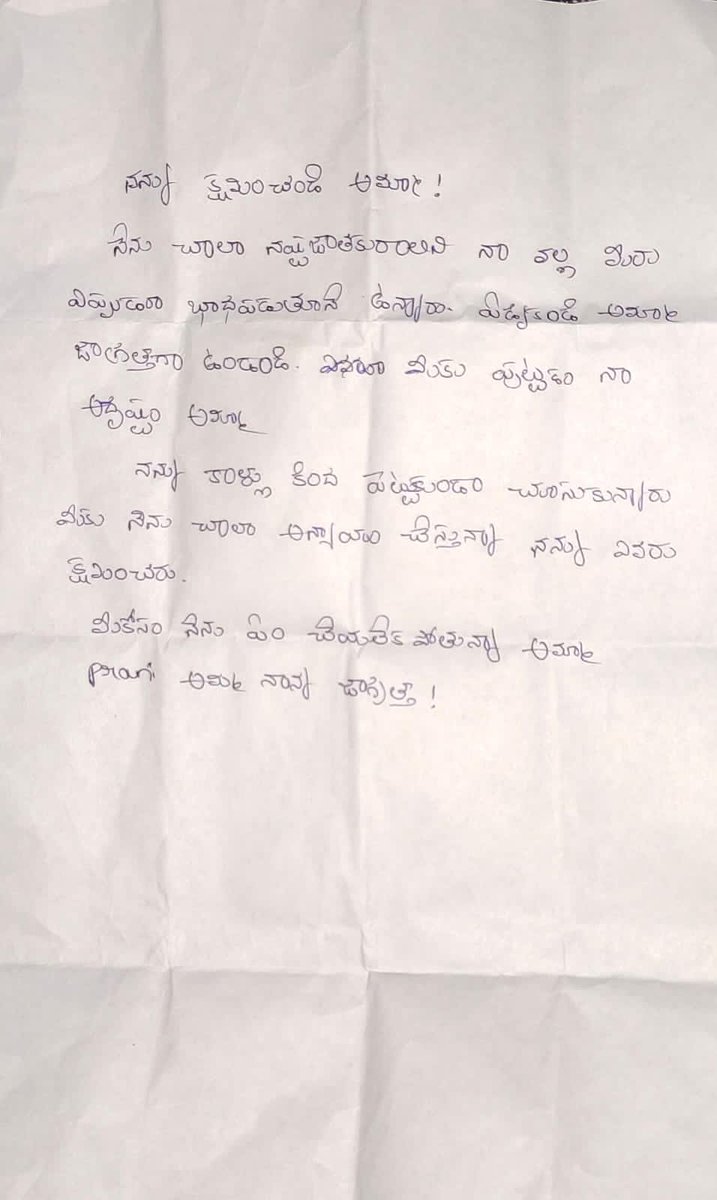 నన్ను క్షమించండి అమ్మా!
నేను చాలా నష్టజాతకురాలిని నా వల్ల మీరు
ఎప్పుడూ భాధపడుతూనే ఉన్నారు. ఏడ్వకండి అమ్మా
జాగ్రత్తగా ఉండండి. మీకు పుట్టడం నా
అదృష్టం అమ్మా
నన్ను కాళ్లు కింద పెట్టకుండా చూసుకున్నారు
మీకు నేను చాలా అన్యాయం చేస్తున్నా నన్ను ఎవరు
క్షమించరు.
మీకోసం నేను ఏం చేయలేక పోతున్నా అమ్మా
Prani అమ్మ నాన్న జాగ్రత్త!